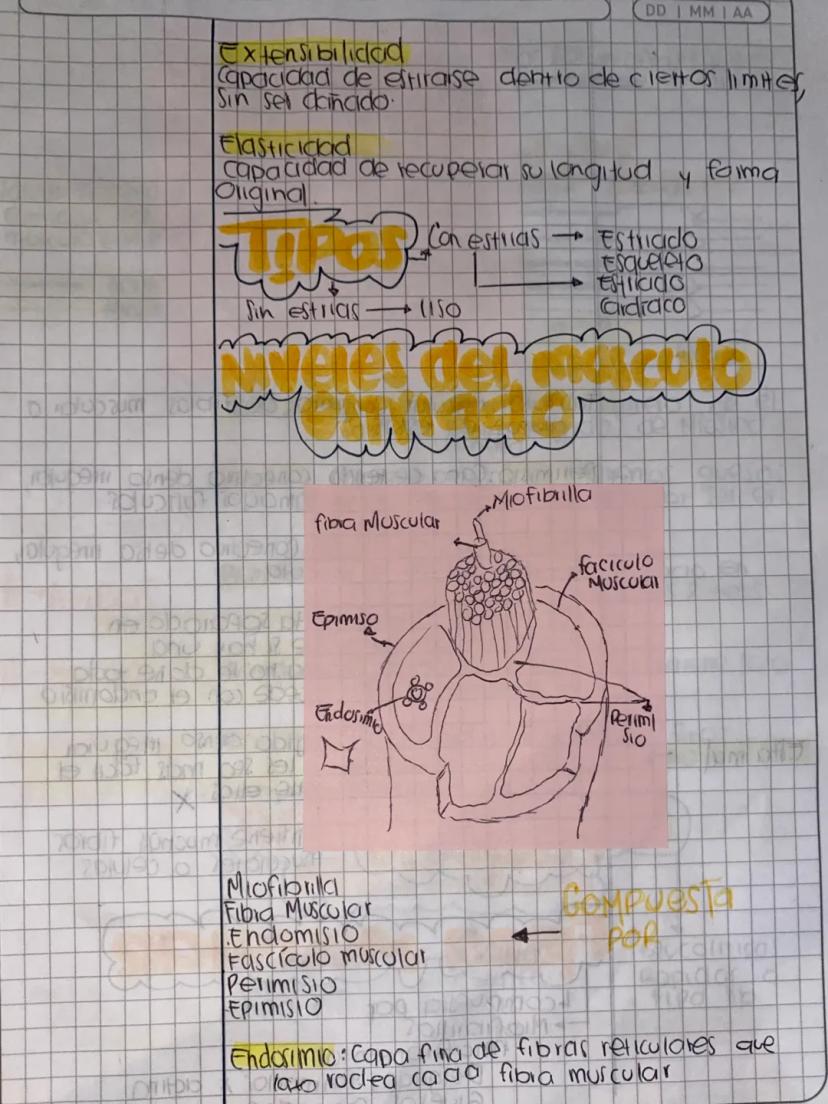 DD | MM | AA
Extensibilidad
Capacidad de estirarse dentro de ciertos limites,
Sin ser dañado.
Elasticidad
Capacidad de recuperar su longitud y forma
Original.
TIPOS
Con estrias → Estriado
Esqueleto
Estriado
Cardiaco
Sin estrias → liso
Niveles del músculo
estriado
Miofibrilla
fibra Muscular
facículo
Muscular
Epimiso
Endosimio
Perimi
sio
Miofibrilla
Fibra Muscular
Endomisio
Fascículo muscular
Perimisio
Epimisio
Compuesta
POR
Endosimio: Capa fina de fibras reticulares que
rodea cada fibra muscular